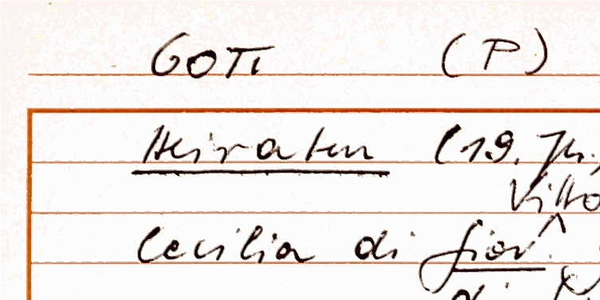 GOTI (P)
Heiraten (19. Jh.
Vitto
Cecilia di Giov.
di